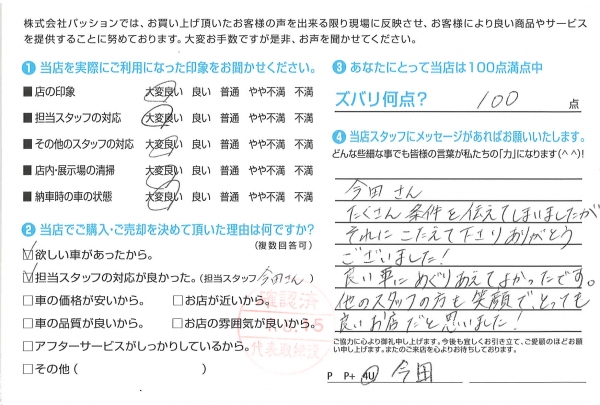 株式会社パッションでは、お買い上げ頂いたお客様の声を出来る限り現場に反映させ、お客様により良い商品やサービス
を提供することに努めております。大変お手数ですが是非、お声を聞かせてください。
❶ 当店を実際にご利用になった印象をお聞かせください。
■ 店の印象 大変良い 良い 普通 やや不満 不満
■ 担当スタッフの対応 大変良い 良い 普通 やや不満 不満
■ その他のスタッフの対応 大変良い 良い 普通 やや不満 不満
■ 店内・展示場の清掃 大変良い 良い 普通 やや不満 不満
■ 納車時の車の状態 大変良い 良い 普通 やや不満 不満
❷ 当店でご購入・ご売却を決めて頂いた理由は何ですか?
(複数回答可)
☑欲しい車があったから。
☑担当スタッフの対応が良かった。(担当スタッフ 今田さん)
□車の価格が安いから。 □お店が近いから。
□車の品質が良いから。 □お店の雰囲気が良いから。
□アフターサービスがしっかりしているから。
□その他 ( )
確認済
代表取締役
❸ あなたにとって当店は100点満点中
ズバリ何点? 100 点
❹ 当店スタッフにメッセージがあればお願いいたします。
どんな些細な事でも皆様の言葉が私たちの「力」になります(^^)!
今田さん
たくさん条件を伝えてしまいましたが
それにこたえて下さりありがとう
ございました!
良い車にめぐりあえてよかったです。
他のスタッフの方も笑顔で、とっても
良いお店だと思いました!
ご協力に心より御礼申し上げます。今後も宜しくお引き立て、ご愛顧のほどお願
い申し上げます。またのご来店を心よりお待ちしております。
P P+ 4U 今田